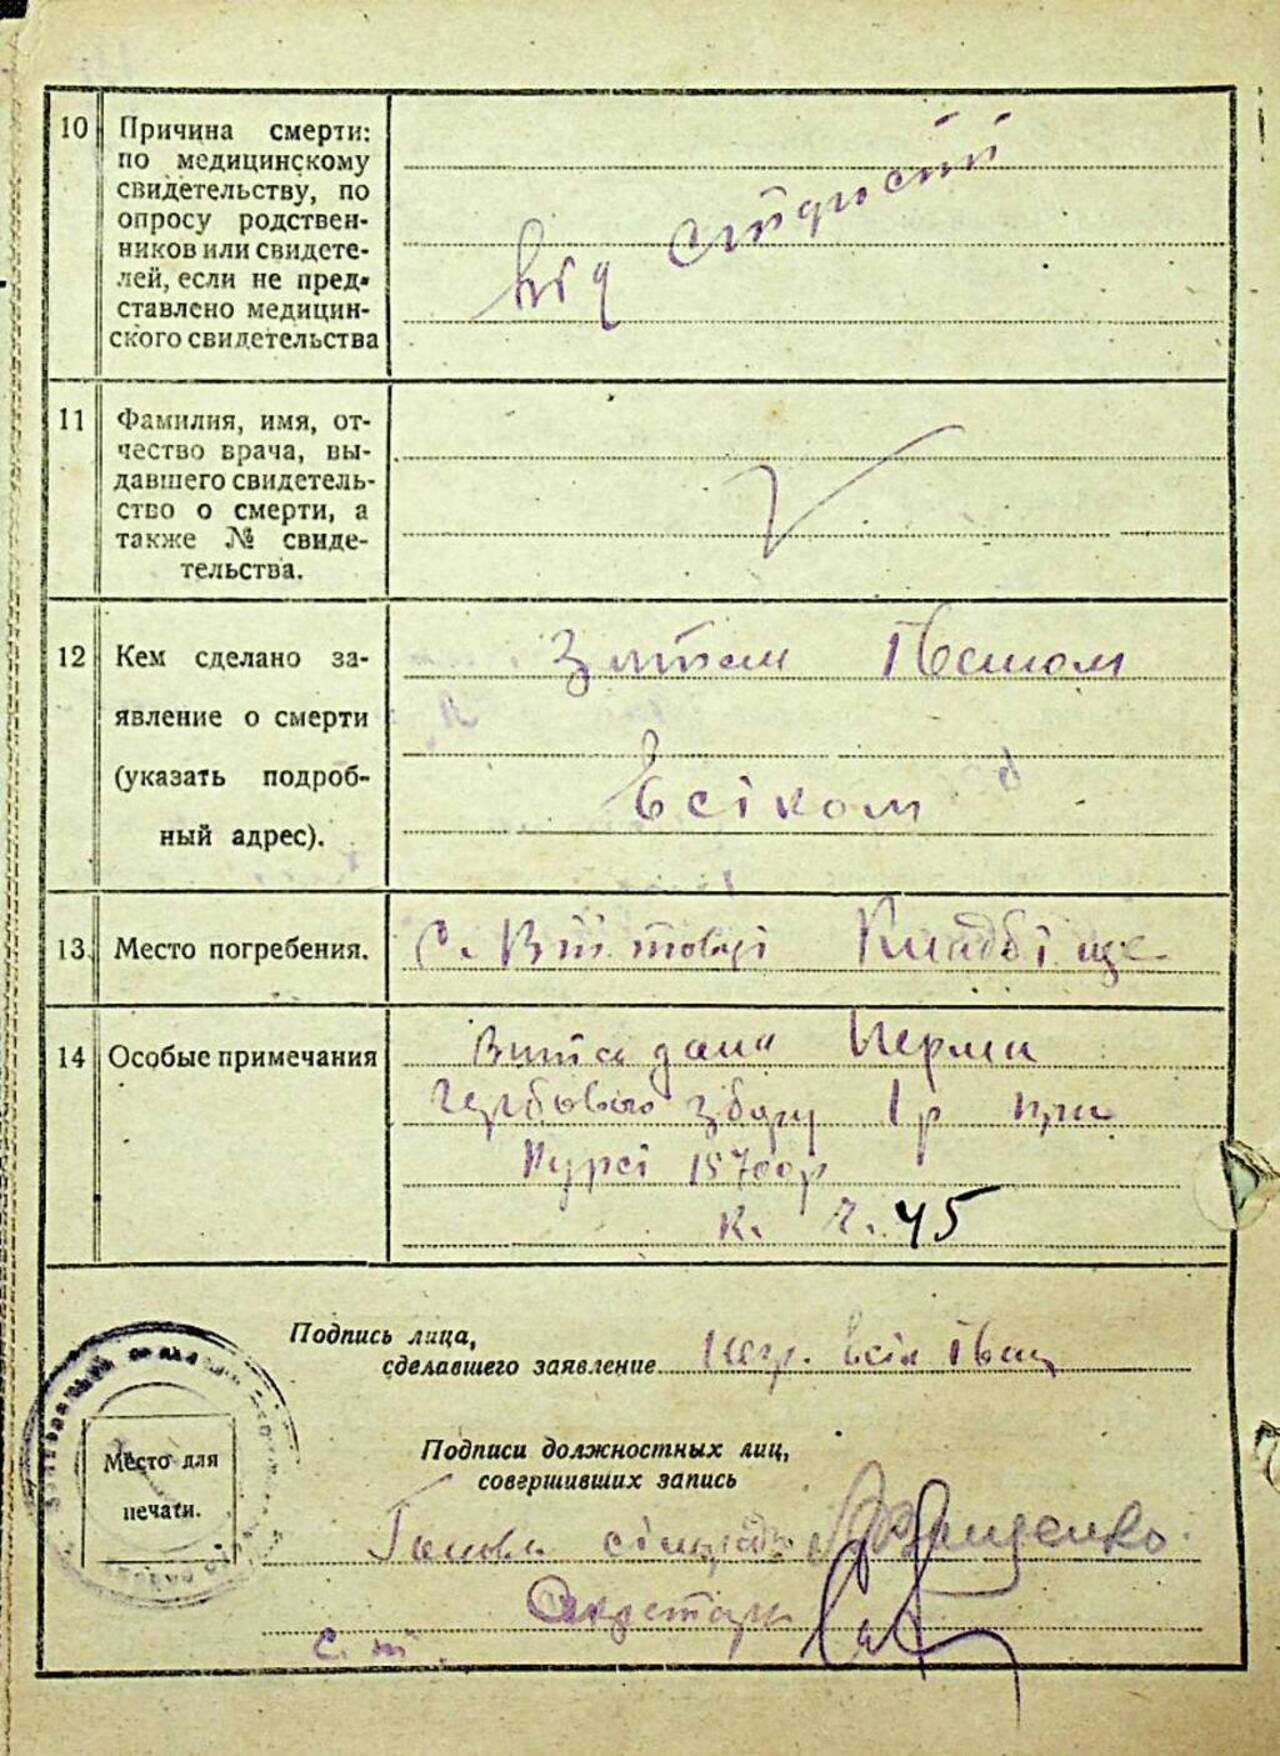 10 Причина смерти:
по медицинскому
свидетельству, по
опросу родствен-
ников или свидете-
лей, если не пред-
ставлено медицин-
ского свидетельства
від старости
11 Фамилия, имя, от-
чество врача, вы-
давшего свидетель-
ство о смерти, а
также № свиде-
тельства.
12 Кем сделано за-
явление о смерти
(указать подроб-
ный адрес).
Зятем Іваном
Всіком
13. Место погребения.
с. Війтовці Кладбіще
14 Особые примечания
збору 1 р при
курсі 15700р
к. ч. 45
Подпись лица,
сделавшего заявление
негр. Всік Іван
Место для
печати.
Подписи должностных лиц,
совершивших запись
Голова сільради
Секретар